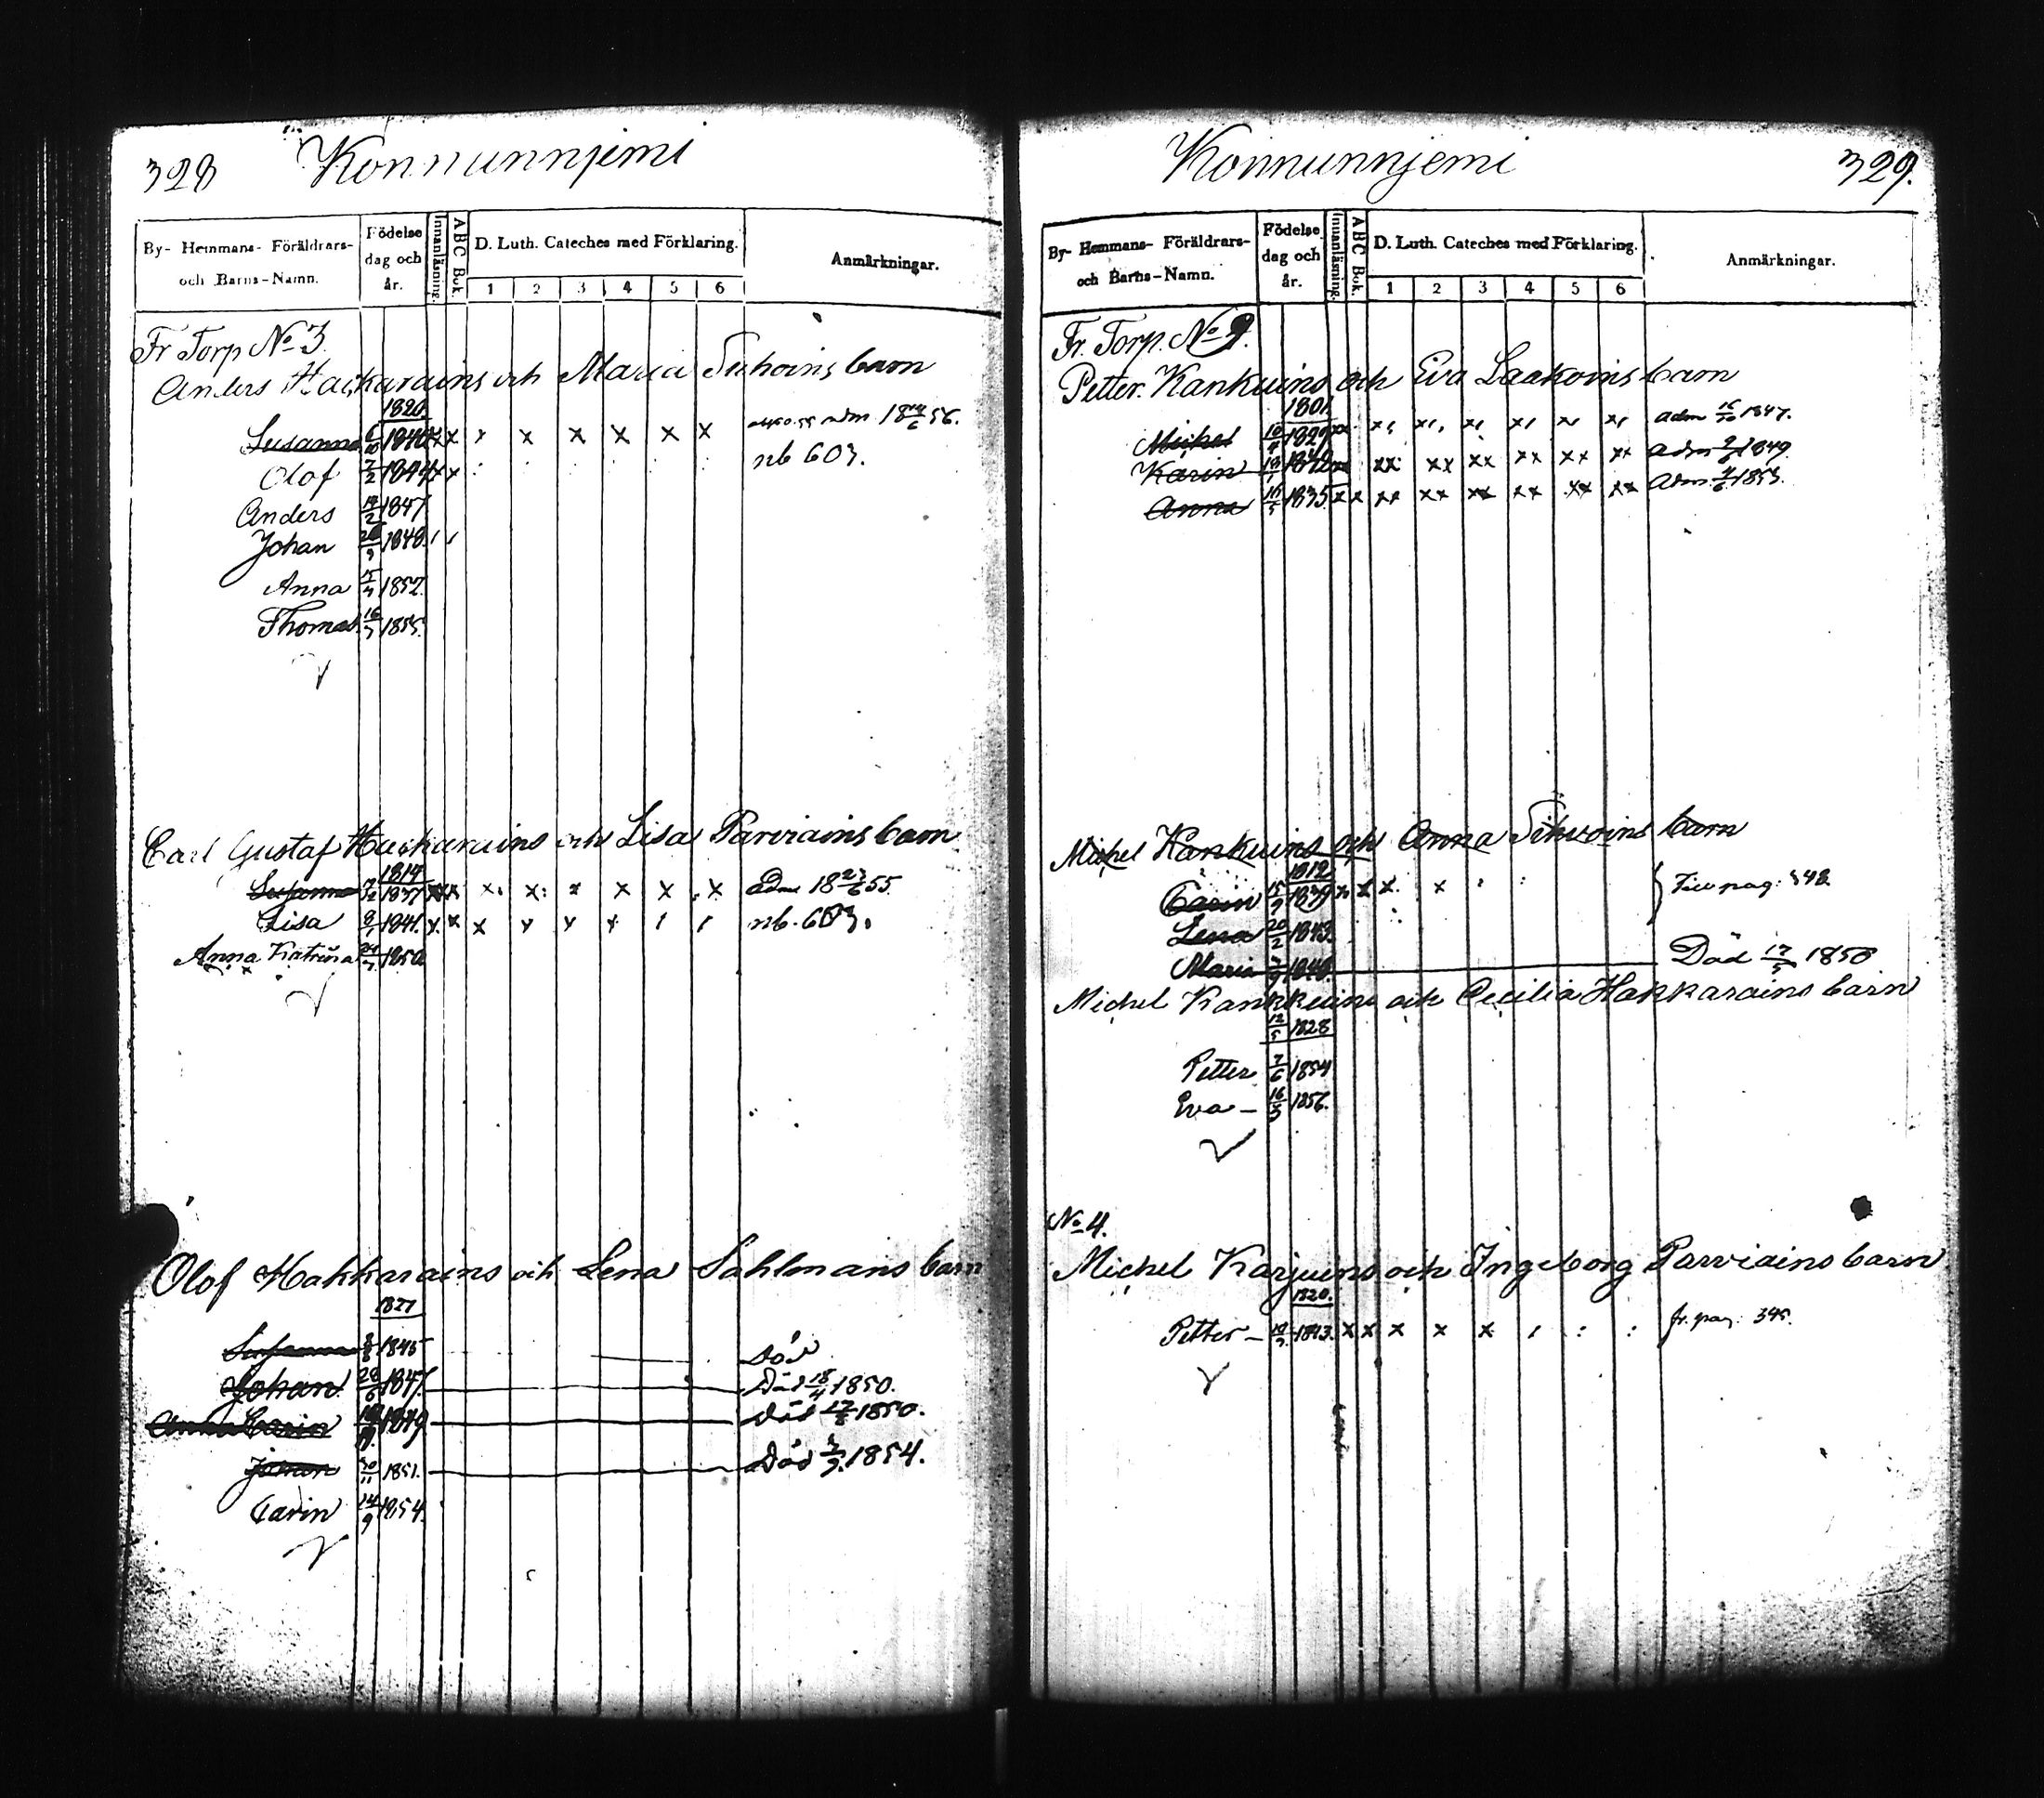 328 Konnunnjemi
By- Hemmans- Föräldrars- och Barns-Namn. Födelse dag och år. Innanläsning. ABC Bok. D. Luth. Cateches med Förklaring. 1 2 3 4 5 6 Anmärkningar.
Fr Torp No 3.
Anders Hackarains och Maria Tuhoins barn
1820
Susanna 1840 x x x x x x x adm 18 56.
Olof 7/2 1844 x x nb 603.
Anders 17/2 1847
Johan 28/9 1848
Anna 15/4 1852.
Thomas 16/7 1855.
Carl Gustaf Hackarains och Lisa Parviains barn
1814
Susanna 1837 x x x x x x adm 18 23/6 55.
Lisa 1841. x x x x x x nb. 603.
Anna Katrina 1850
Olof Hakkarains och Lena Sahlmans barn
1821
Susanna 1845 Död
Johan 28/6 1847. Död 18/4 1850.
Anna Carin 1849 Död 1850.
Johan 30/11 1851. Död 1854.
Carin 14/9 1854.
Konnunnjemi 329.
By- Hemmans- Föräldrars- och Barns-Namn. Födelse dag och år. Innanläsning. ABC Bok. D. Luth. Cateches med Förklaring. 1 2 3 4 5 6 Anmärkningar.
Fr. Torp. No 9.
Petter Kankuins och Eva Laakoins barn
1801
Michel 1829 x x x x x x adm 1847.
Karin xx xx xx xx xx xx adm 1849.
Anna 16/5 1835 x x xx xx xx xx xx xx adm 1853.
Michel Kankuins och Anna Sihvoins barn
1812
Carin 15/9 1839 x x x x Till pag: 348
Lena 20/2 1843.
Maria 1848 Död 17/5 1850
Michel Kankkuins och Cecilia Hakkarains barn
12/5 1828
Petter 7/6 1854
Eva - 16/5 1856.
No 4.
Michel Karjuins och Ingeborg Parviains barn
1820.
Petter - 1843. x x x x x fr. pag: 345.